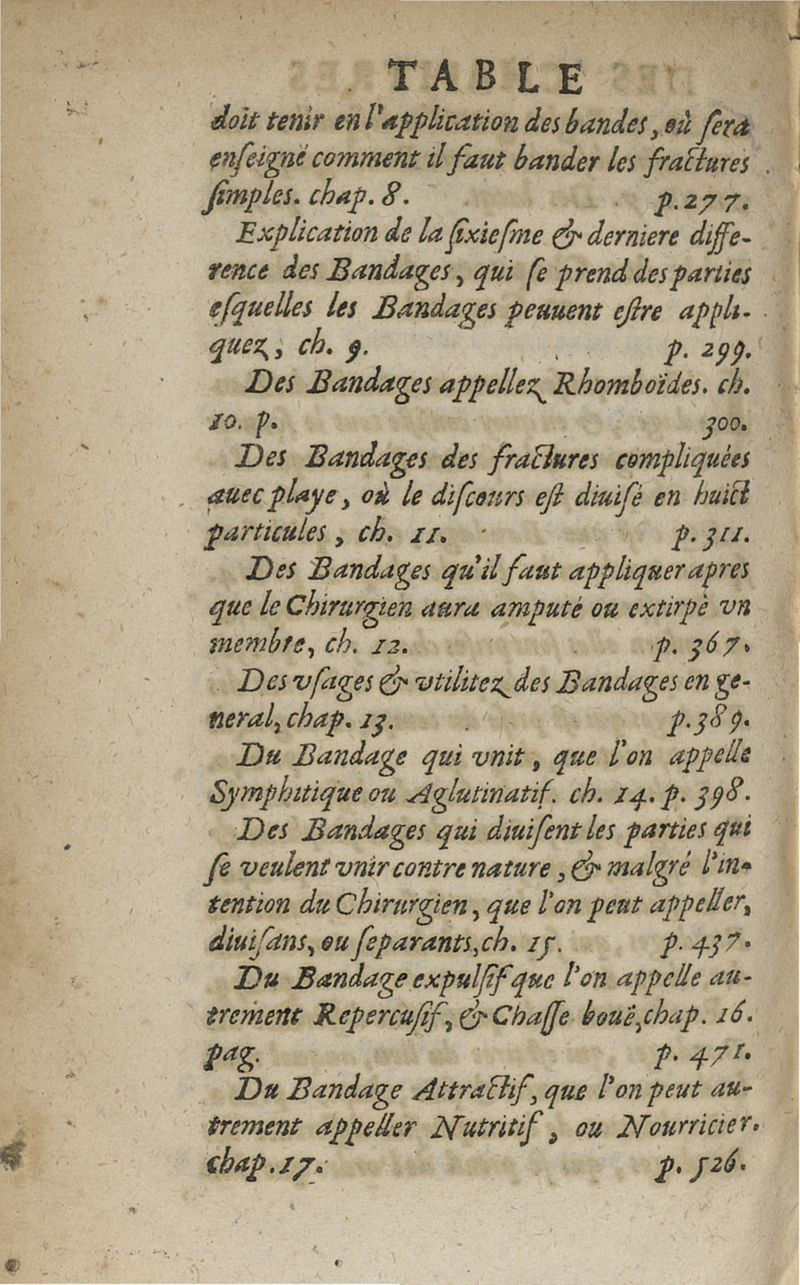 TABLE
doit tenir en l'application des bandes, où ſera
enſeigné comment il faut bander les fractures
ſimples. chap. 8. p. 277.
Explication de la ſixieſme & derniere diffe-
rence des Bandages, qui ſe prend des parties
eſquelles les Bandages peuuent eſtre appli-
quez, ch. 9. p. 299.
Des Bandages appellez Rhomboïdes. ch.
10. p. 300.
Des Bandages des fractures compliquées
auec playe, où le diſcours eſt diuiſé en huict
particules, ch. 11. p. 311.
Des Bandages qu'il faut appliquer apres
que le Chirurgien aura amputé ou extirpè vn
membre, ch. 12. p. 367.
Des vſages & vtilitez des Bandages en ge-
neral, chap. 13. p. 389.
Du Bandage qui vnit, que l'on appelle
Symphitique ou Aglutinatif. ch. 14. p. 398.
Des Bandages qui diuiſent les parties qui
ſe veulent vnir contre nature, & malgré l'in-
tention du Chirurgien, que l'on peut appeller,
diuiſans, ou ſeparants, ch. 15. p. 437.
Du Bandage expulſif que l'on appelle au-
trement Repercuſif, & Chaſſe bouë, chap. 16.
pag. p. 471.
Du Bandage Attractif, que l'on peut au-
trement appeller Nutritif, ou Nourricier.
chap. 17. p. 526.